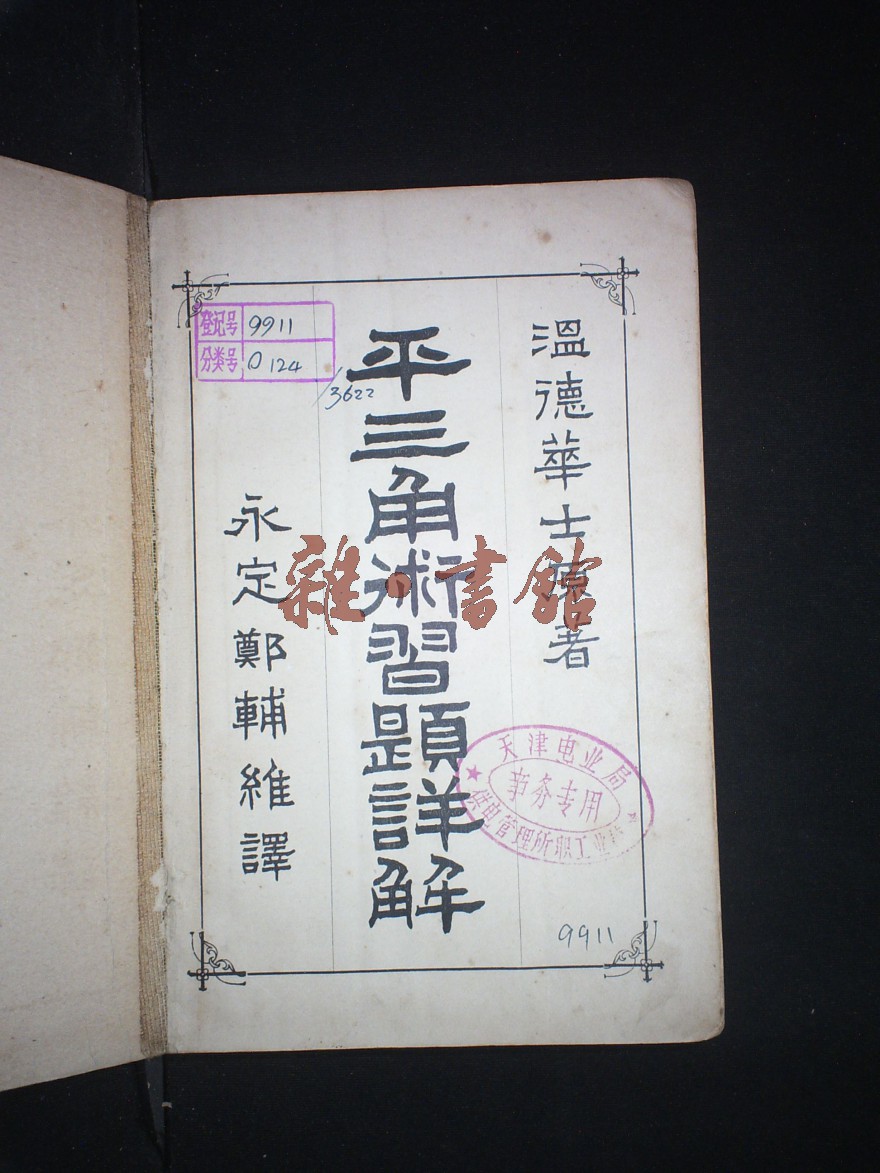 溫德華士原著
平三角術習題詳解
永定鄭輔維譯
登记号 9911
分类号 O 124
/3622
雜·書館
天津电业局
事务专用
供电管理所职工业
9911